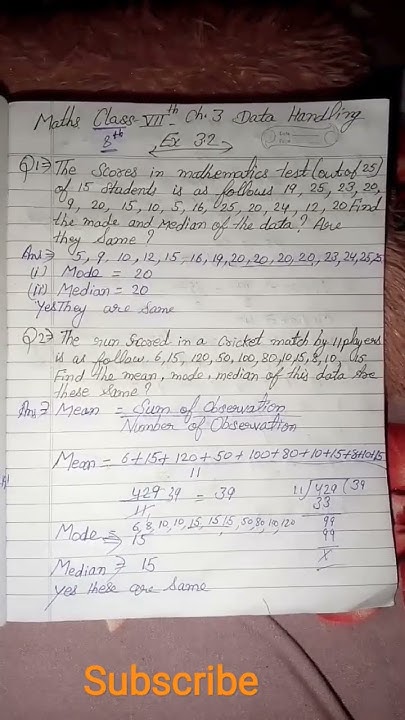 Maths Class-VIIth Ch.3 Data Handling
8th
Ex 3.2
Q1⇒ The Scores in mathematics test (out of 25)
of 15 students is as follows 19, 25, 23, 20,
9, 20, 15, 10, 5, 16, 25, 20, 24, 12, 20 Find
the mode and median of the data? Are
they Same?
Ans⇒ 5, 9, 10, 12, 15, 16, 19, 20, 20, 20, 20, 23, 24, 25, 25
(i) Mode = 20
(ii) Median = 20
Yes They are same
Q2⇒ The run scored in a Cricket match by 11 players
is as follow. 6, 15, 120, 50, 100, 80, 10, 15, 8, 10, 15
Find the mean, mode, median of this data Are
these Same?
Ans⇒ Mean = Sum of Observation
Number of Observation
Mean = 6+15+120+50+100+80+10+15+8+10+15
11
429 39 = 39
11
11)429(39
33
99
99
X
6, 8, 10, 10, 15, 15, 15, 50, 80, 10, 120
Mode ⇒ 15
Median ⇒ 15
Yes these are Same
Subscribe